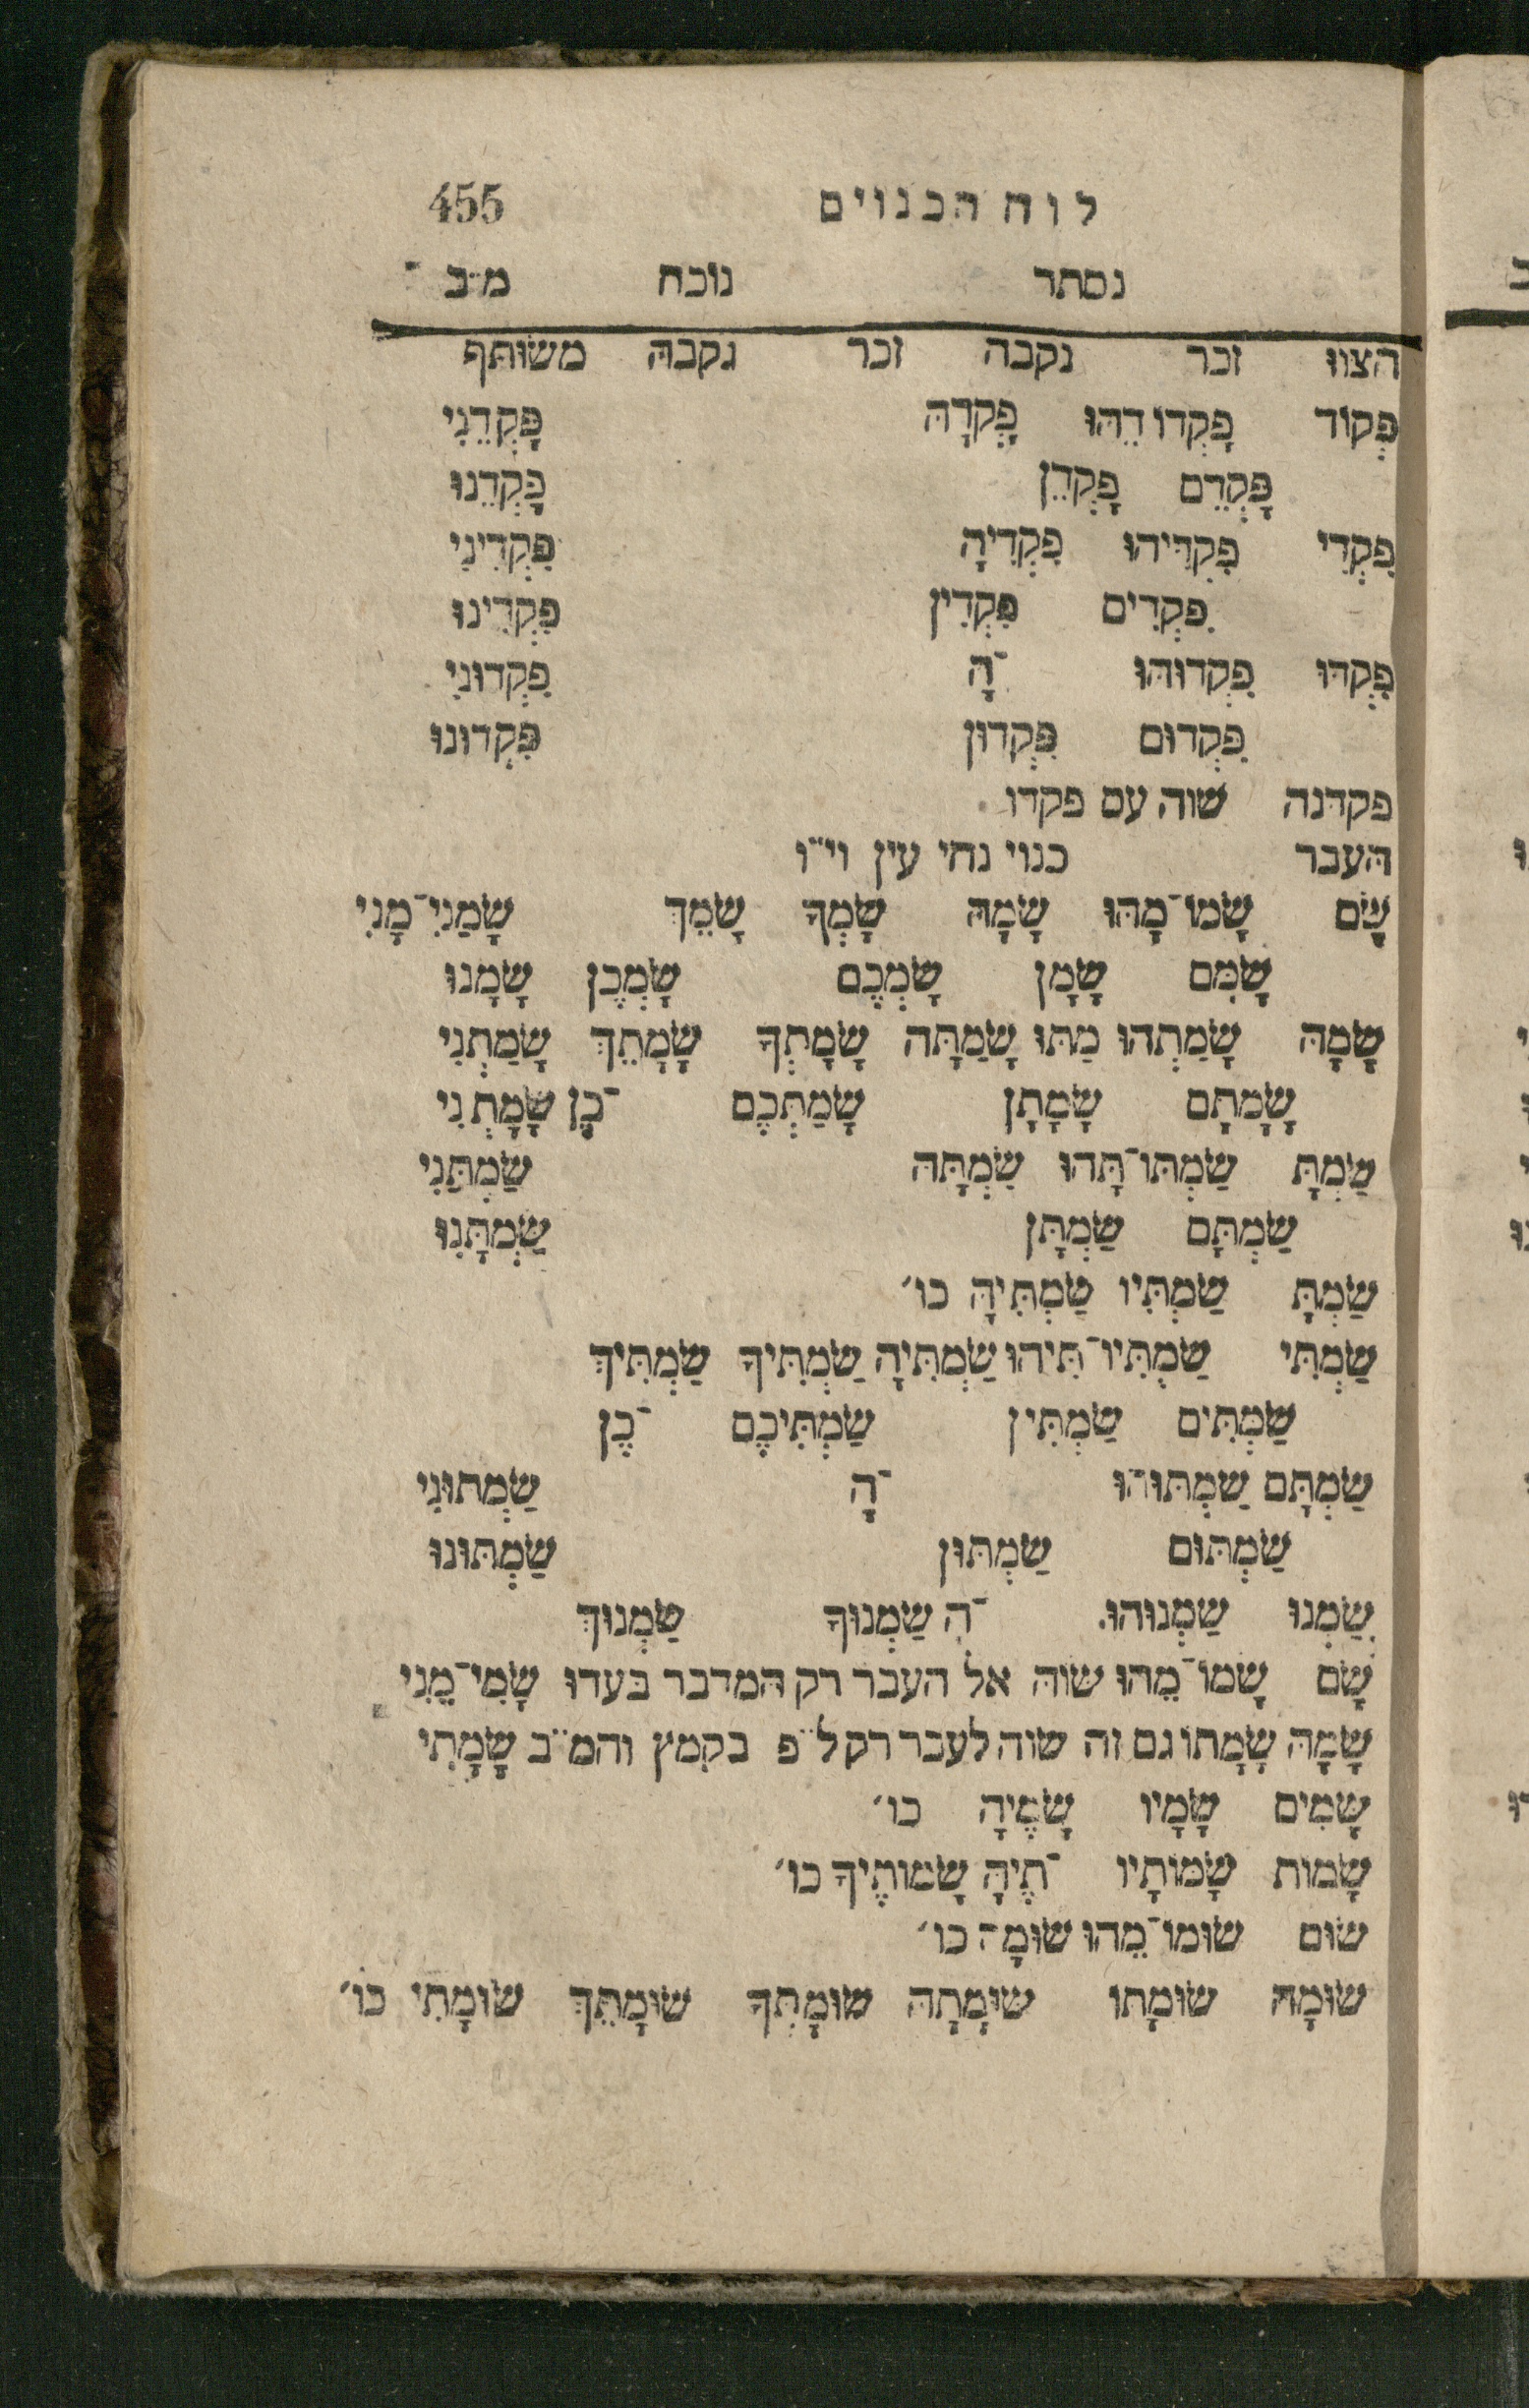 לוח הכנוים 455
נסתר נוכח מ״ב
הצווּ זכר נקבה זכר נקבה משותף
פְּקוֹד פָּקְדוֹ דֵהוּ פָּקְדָהּ פָּקְדֵנִי
פָּקְדֵם פָּקְדֵן פָּקְדֵנוּ
פִּקְדִי פִּקְדִיהוּ פִּקְדִיהָ פִּקְדִינִי
פִּקְדִים פִּקְדִין פִּקְדִינוּ
פִּקְדוּ פִּקְדוּהוּ ־הָ פִּקְדוּנִי
פִּקְדוּם פִּקְדוּן פִּקְדוּנוּ
פקדנה שוה עם פקדו
העבר כנוי נחי עין וי״ו
שָׂם שָׂמוֹ־מָהוּ שָׂמָהּ שָׂמְךָ שָׂמֵךְ שָׂמַנִי־מָנִי
שָׂמָם שָׂמָן שָׂמְכֶם שָׂמְכֶן שָׂמָנוּ
שָׂמָה שָׂמַתְהוּ מַתּוּ שָׂמַתָּה שָׂמָתְךָ שָׂמָתֵךְ שָׂמַתְנִי
שָׂמָתָם שָׂמָתָן שָׂמַתְכֶם ־כֶן שָׂמָתְנִי
שַׂמְתָּ שַׂמְתּוֹ־תָּהוּ שַׂמְתָּהּ שַׂמְתַּנִי
שַׂמְתָּם שַׂמְתָּן שַׂמְתָּנוּ
שַׂמְתְּ שַׂמְתִּיו שַׂמְתִּיהָ כו׳
שַׂמְתִּי שַׂמְתִּיו־תִּיהוּ שַׂמְתִּיהָ שַׂמְתִּיךָ שַׂמְתִּיךְ
שַׂמְתִּים שַׂמְתִּין שַׂמְתִּיכֶם ־כֶן
שַׂמְתֶּם שַׂמְתּוּהוּ ־הָ שַׂמְתּוּנִי
שַׂמְתּוּם שַׂמְתּוּן שַׂמְתּוּנוּ
שַׂמְנוּ שַׂמְנוּהוּ ־הָ שַׂמְנוּךָ שַׂמְנוּךְ
שָׂם שָׂמוֹ־מֵהוּ שוה אל העבר רק המדבר בעדו שָׂמִי־מֵנִי
שָׂמָה שָׂמָתוֹ גם זה שוה לעבר רק ל״פ בקמץ והמ״ב שָׂמָתִי
שָׂמִים שָׂמָיו שָׂמֶיהָ כו׳
שָׂמוֹת שָׂמוֹתָיו ־תֶיהָ שָׂמוֹתֶיךָ כו׳
שׂוּם שׂוּמוֹ־מֵהוּ שׂוּמָהּ כו׳
שׂוּמָה שׂוּמָתוֹ שׂוּמָתָהּ שׂוּמָתְךָ שׂוּמָתֵךְ שׂוּמָתִי כו׳